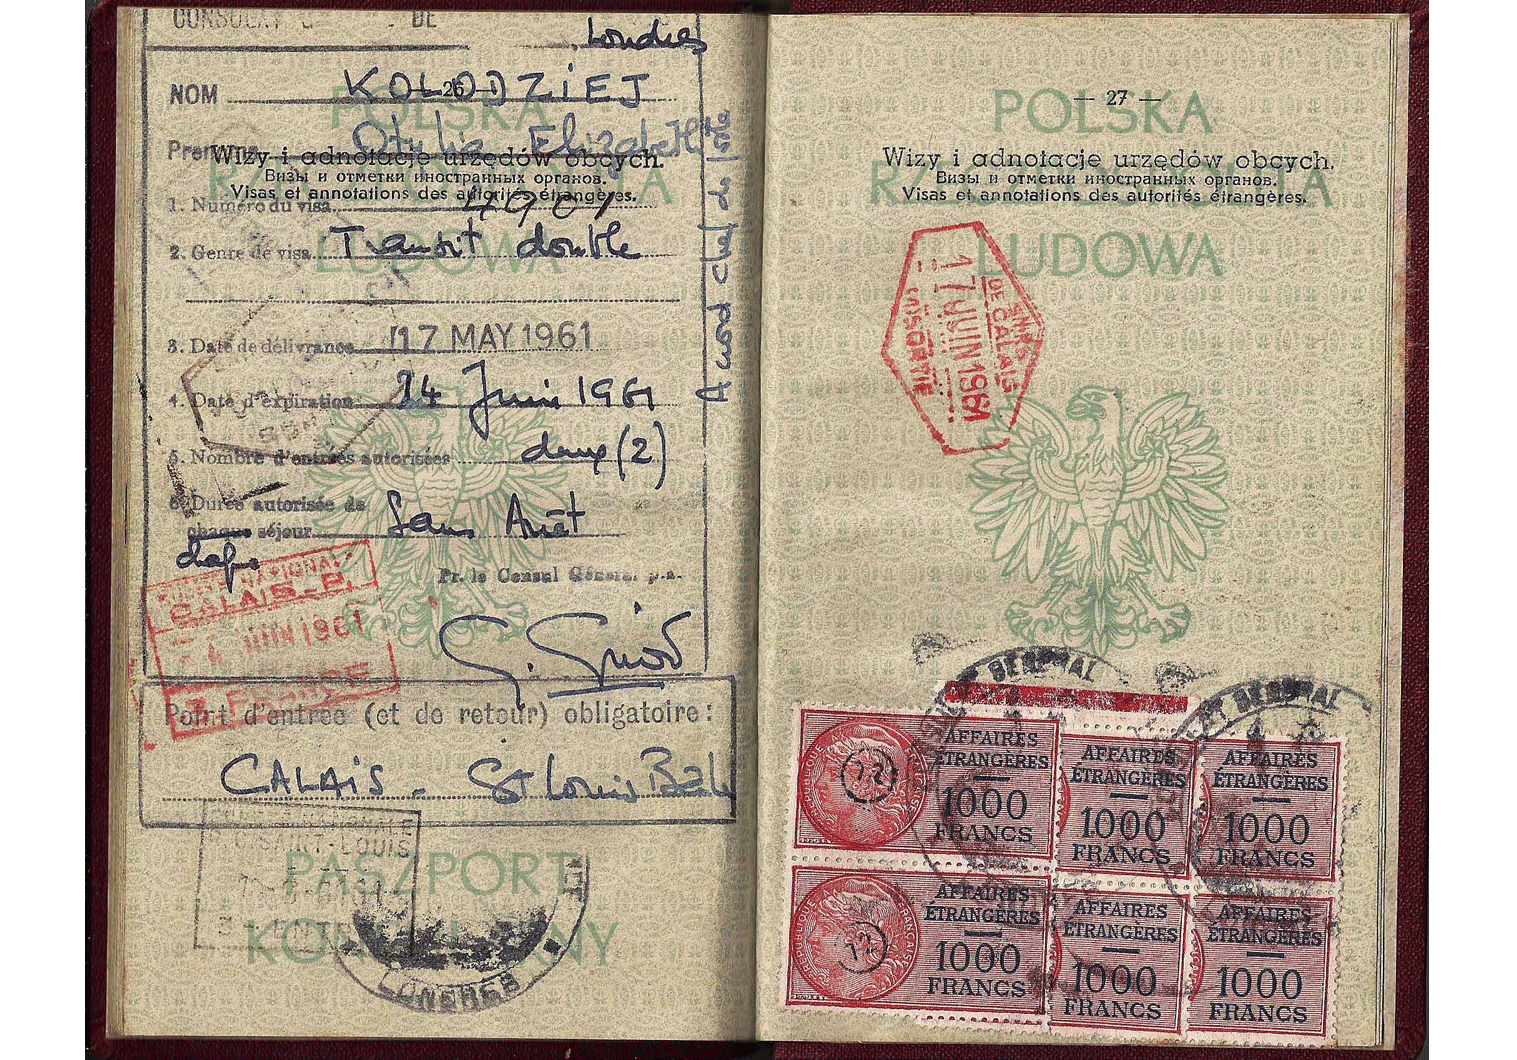 DE
Londres
NOM KOLODZIEJ
— 26 —
POLSKA
Otylia Elizabeth
Wizy i adnotacje urzędów obcych.
Визы и отметки иностранных органов.
Visas et annotations des autorités étrangères.
1. Numéro du visa
LUDOWA
2. Genre de visa Transit double
3. Date de délivrance 17 MAY 1961
4. Date d'expiration 14 Juin 1961
5. Nombre d'entrées autorisées deux (2)
6. Durée autorisée de
chaque séjour Sans Arrêt
Pr. le Consul Général p.a.
CALAIS
JUIN 1961
FRANCE
Point d'entrée (et de retour) obligatoire:
CALAIS - St Louis Bale
PASZPORT
LONDRES
— 27 —
POLSKA
Wizy i adnotacje urzędów obcych.
Визы и отметки иностранных органов.
Visas et annotations des autorités étrangères.
LUDOWA
DE CALAIS
17 JUIN 1961
SORTIE
AFFAIRES
ÉTRANGÈRES
1000
FRANCS
AFFAIRES
ÉTRANGÈRES
1000
FRANCS
AFFAIRES
ÉTRANGÈRES
1000
FRANCS
AFFAIRES
ÉTRANGÈRES
1000
FRANCS
AFFAIRES
ÉTRANGÈRES
1000
FRANCS
AFFAIRES
ÉTRANGÈRES
1000
FRANCS